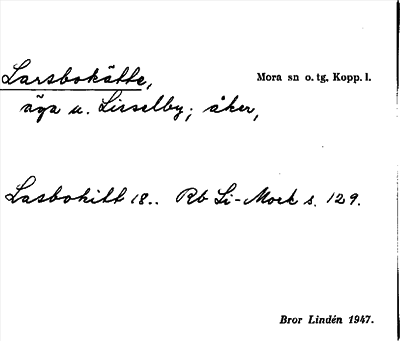 Larsbokätte, Mora sn o. tg. Kopp. l.
äga u. Lisselby; åker,
Lasbokitt 18.. Rb Li-Mork s. 129.
Bror Lindén 1947.